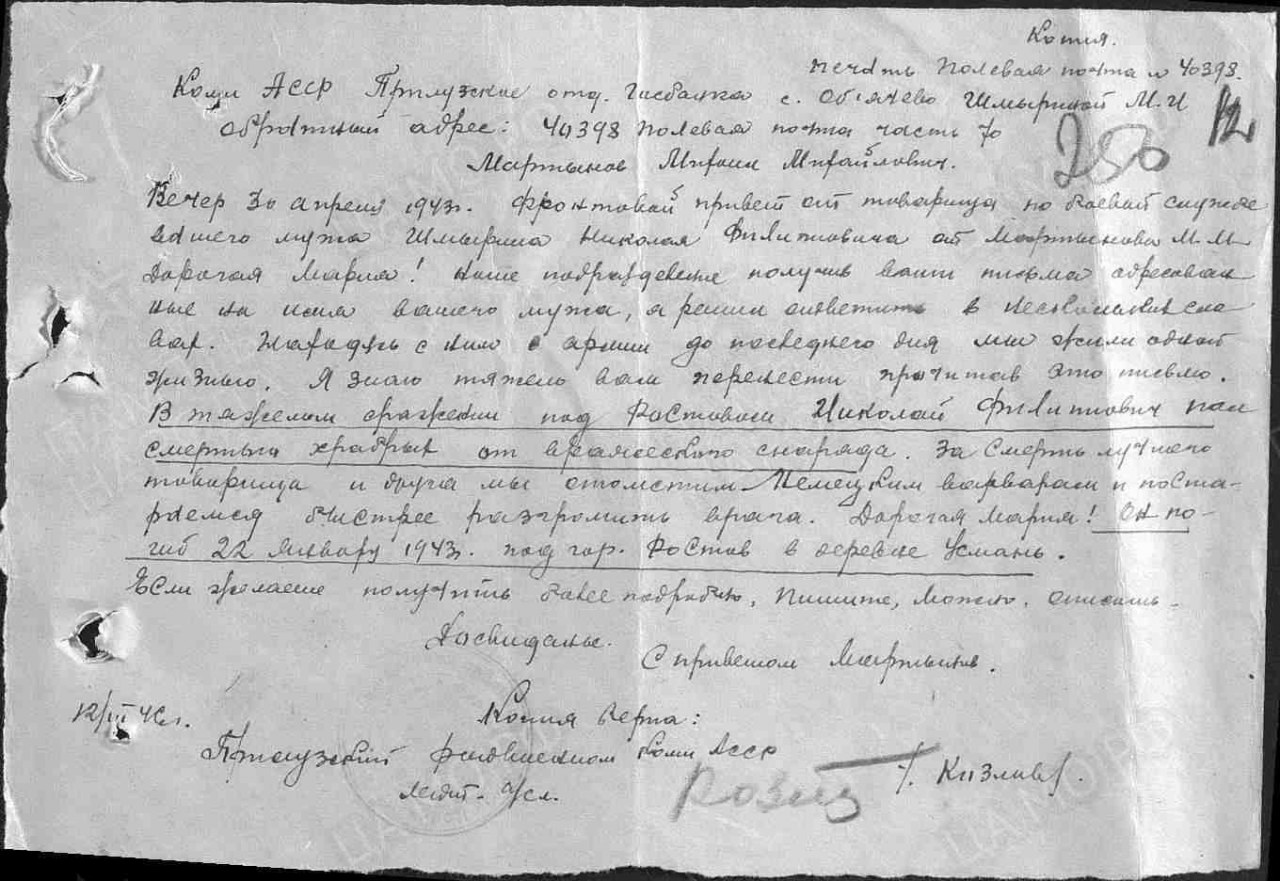 Копия.
печать Полевая почта № 40398.
Коми АССР Прилузское отд. Госбанка с. Объячево Шмыриной М.И
12
Обратный адрес: 40398 полевая почта часть 70
250
Мартынов Михаил Михайлович.
Вечер 30 апреля 1943г. Фронтовой привет от товарища по боевой службе
вашего мужа Шмырина Николая Филипповича от Мартынова М.М
Дорогая Мария! Наше подразделение получив ваши письма адресован
ные на имя вашего мужа, я решил ответить в нескольких сло
вах. Находясь с ним в армии до последнего дня мы жили одной
жизнью. Я знаю тяжело вам перенести прочитав это письмо.
В тяжелом сражении под Ростовом Николай Филиппович пал
смертью храбрых от вражеского снаряда. За смерть лучшего
товарища и друга мы отомстим Немецким варварам и поста-
раемся быстрее разгромить врага. Дорогая Мария! Он по-
гиб 22 январу 1943г. под гор. Ростов в деревне Усмань.
Если желаете получить более подробно, пишите, можно. описать.
Досвиданье.
С приветом Мартынов.
12/III 46г.
Копия верна:
Прилузский райвоенком Коми АССР
/. Козлов/.